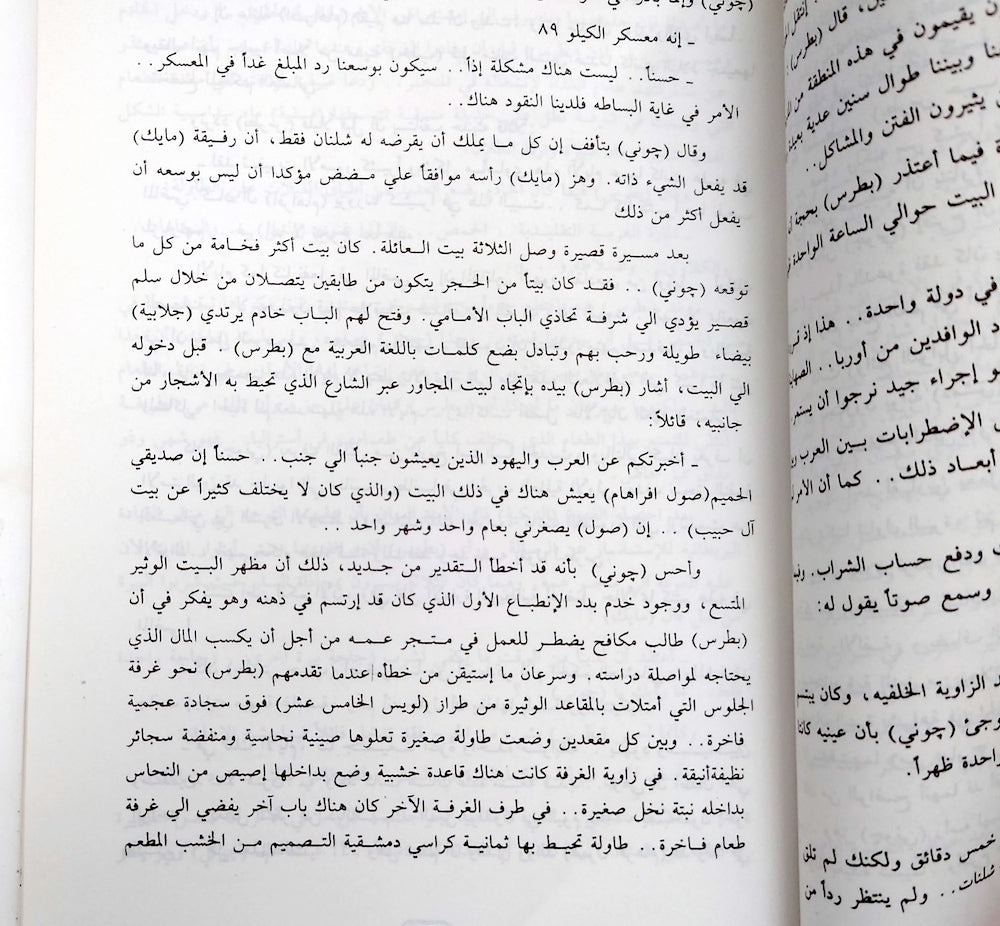 (چوني) وإنما
ـ إنه معسكر الكيلو ٨٩
ـ حسناً.. ليست هناك مشكلة إذاً.. سيكون بوسعنا رد المبلغ غداً في المعسكر..
الأمر في غاية البساطه فلدينا النقود هناك..
وقال (چوني) بتأفف إن كل ما يملك أن يقرضه له شلنان فقط، أن رفيقة (مايك)
قد يفعل الشيء ذاته. وهز (مايك) رأسه موافقاً علي مضض مؤكدا أن ليس بوسعه أن
يفعل أكثر من ذلك
بعد مسيرة قصيرة وصل الثلاثة بيت العائلة. كان بيت أكثر فخامة من كل ما
توقعه (چوني) .. فقد كان بيتاً من الحجر يتكون من طابقين يتصلان من خلال سلم
قصير يؤدي الي شرفة تحاذي الباب الأمامي. وفتح لهم الباب خادم يرتدي (جلابية)
بيضاء طويلة ورحب بهم وتبادل بضع كلمات باللغة العربية مع (بطرس) . قبل دخوله
الي البيت، أشار (بطرس) بيده بإتجاه لبيت المجاور عبر الشارع الذي تحيط به الأشجار من
جانبيه، قائلاً:
ـ أخبرتكم عن العرب واليهود الذين يعيشون جنباً الي جنب.. حسناً إن صديقي
الحميم(صول افراهام) يعيش هناك في ذلك البيت (والذي كان لا يختلف كثيراً عن بيت
آل حبيب) .. إن (صول) يصغرني بعام واحد وشهر واحد ..
وأحس (چوني) بأنه قد أخطأ التقدير من جديد، ذلك أن مظهر البيت الوثير
المتسع، ووجود خدم بدد الإنطباع الأول الذي كان قد إرتسم في ذهنه وهو يفكر في أن
(بطرس) طالب مكافح يضطر للعمل في متجر عمه من أجل أن يكسب المال الذي
يحتاجه لمواصلة دراسته. وسرعان ما إستيقن من خطأه عندما تقدمهم (بطرس) نحو غرفة
الجلوس التي أمتلات بالمقاعد الوثيرة من طراز (لويس الخامس عشر) فوق سجادة عجمية
فاخرة.. وبين كل مقعدين وضعت طاولة صغيرة تعلوها صينية نحاسية ومنفضة سجائر
نظيفةأنيقة. في زاوية الغرفة كانت هناك قاعدة خشبية وضع بداخلها إصيص من النحاس
بداخله نبتة نخل صغيرة.. في طرف الغرفة الآخر كان هناك باب آخر يفضي الي غرفة
طعام فاخرة.. طاولة تحيط بها ثمانية كراسي دمشقية التصميم من الخشب المطعم
قال (بطرس)
يقيمون في هذه المنطقة من
وبيننا طوال سنين عدية
يثيرون الفتن والمشاكل..
فيما أعتذر (بطرس) بحجة
البيت حوالي الساعة الواحدة
في دولة واحدة.. هذا إذ
الوافدين من أوربا..
إجراء جيد نرجوا أن
الإضطرابات بين العرب
أبعاد ذلك.. كما أن
ودفع حساب الشراب.
وسمع صوتاً يقول له:
الزاوية الخلفيه، وكان
(چوني) بأن عينيه
واحدة ظهراً.
خمس دقائق ولكنك لم
شلنات.. ولم ينتظر رداً من